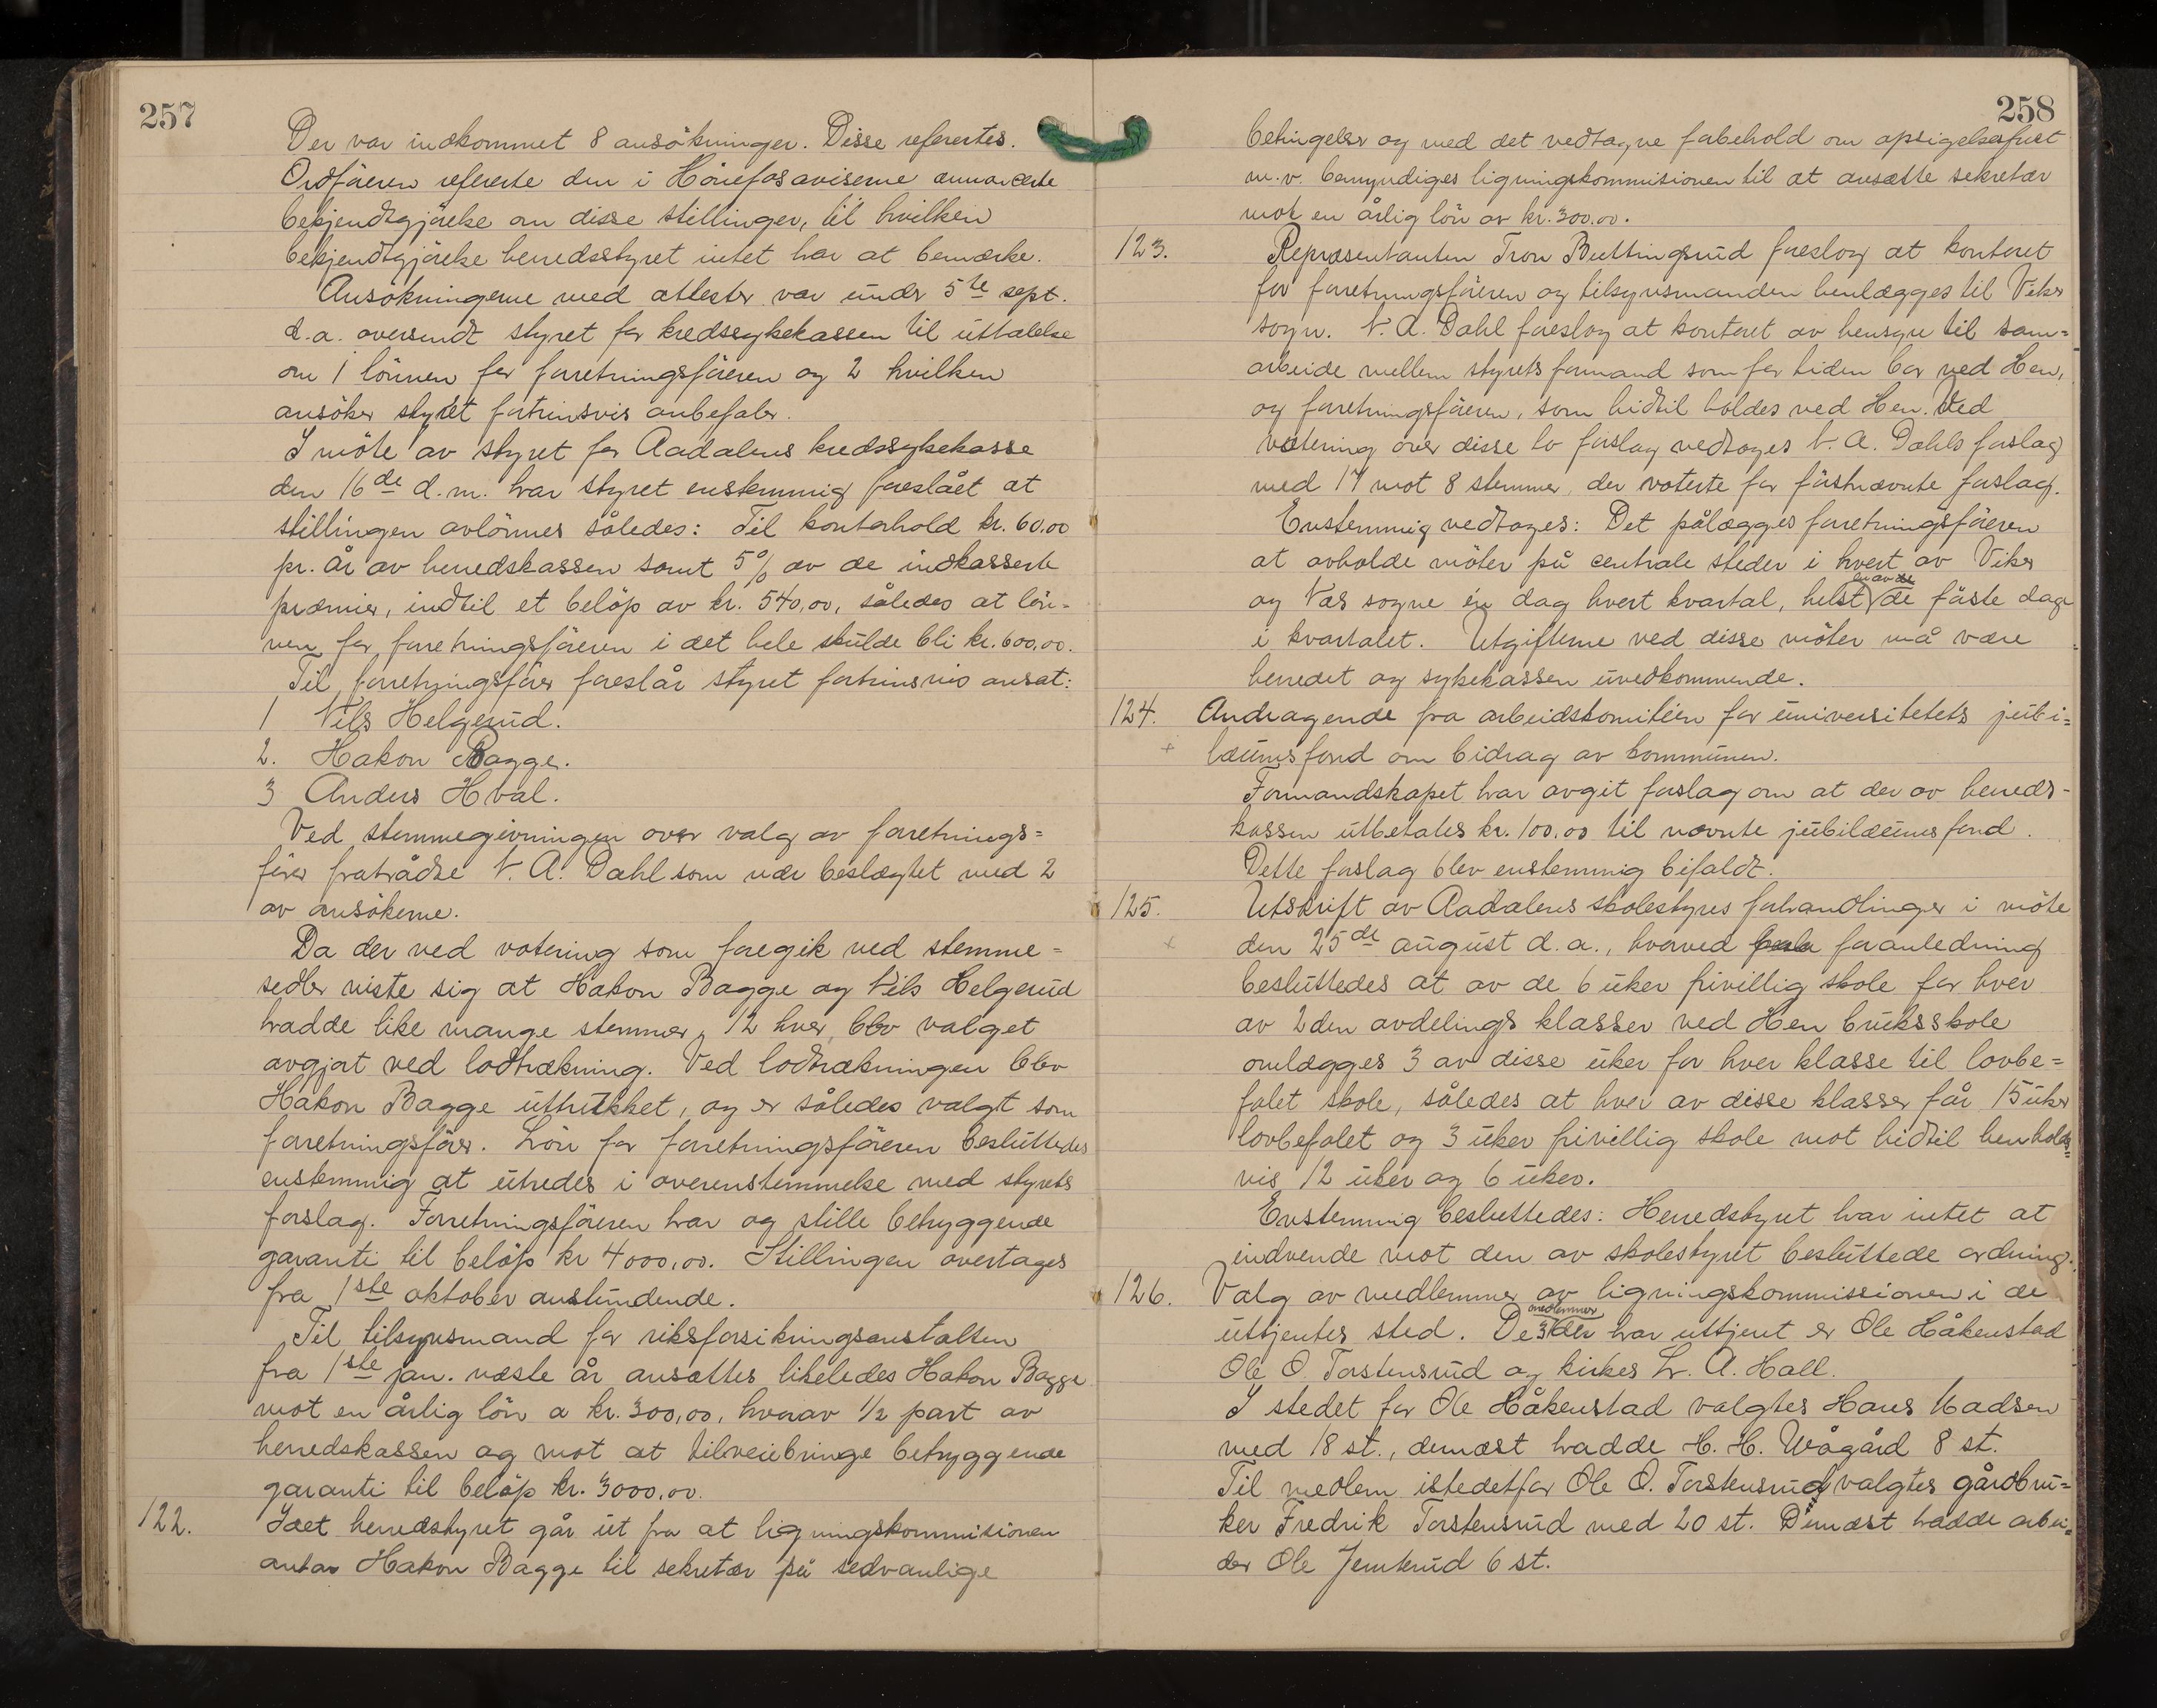 257
Der var indkommet 8 ansökninger. Disse refertes.
Ordföreren refererte den i Hönefosaviserne annoncerte
bekjendtgjörelse om disse stillinger, til hvilken
bekjendtgjörelse herredsstyret intet har at bemærke.
Ansökningerne med attester var under 5te sept.
d.a. oversendt styret for kredssykekassen til uttalelse
om 1 lönnen for forretningsföreren og 2 hvilken
ansöker styret fortrinsvis anbefaler.
I möte av styret for Aadalens kredssykekasse
den 16de d.m. har styret enstemmig foreslået at
stillingen avlönnes således: Til kontorhold kr. 60.00
pr. år av herredskassen samt 5% av de indkasserte
præmier, indtil et belöp av kr. 540,00, således at lön-
nen for forretningsföreren i det hele skulde bli kr. 600,00.
Til forretningsförer foreslår styret fortrinsvis ansat:
1 Nils Helgerud.
2. Hakon Bagge.
3 Anders Hval.
Ved stemmegivningen over valg av forretnings=
förer fratrådte N. A. Dahl som nær beslægtet med 2
av ansökerne.
Da der ved votering som foregik ved stemme=
sedler viste sig at Hakon Bagge og Nils Helgerud
hadde like mange stemmer, 12 hver, blev valget
avgjort ved lodtrækning. Ved lodtrækningen blev
Hakon Bagge uttrukket, og er således valgt som
forretningsförer. Lön for forretningsföreren besluttedes
enstemmig at utredes i overenstemmelse med styrets
forslag. Forretningsföreren har og stille betryggende
garanti til belöp kr 4000,00. Stillingen overtages
fra 1ste oktober anstundende.
Til tilsynsmand for riksforsikringsanstalten
fra 1ste jan. næste år ansættes likeledes Hakon Bagge
mot en årlig lön a kr. 300,00, hvorav 1/2 part av
herredskassen og mot at tilveiebringe betryggende
garanti til belöp kr. 3000,00.
122. Idet herredstyret går ut fra at ligningskommisionen
antar Hakon Bagge til sekretær på sedvanlige
258
betingelser og med det vedtagne forbehold om opsigelsesfrist
m.v. bemyndiges ligningskommisionen til at ansætte sekretær
mot en årlig lön av kr. 300.00.
123. Repræsentanten Tron Buttingsrud foreslog at kontoret
for forretningsföreren og tilsynsmanden henlægges til Viker
sogn. N. A. Dahl foreslog at kontoret av hensyn til sam=
arbeide mellem styrets formand som for tiden bor ved Hen,
og forretningsföreren, som hidtil holdes ved Hen. Ved
votering over disse to forslag vedtoges N. A. Dahls forslag
med 17 mot 8 stemmer, der voterte for förstnævnte forslag.
Enstemmig vedtoges: Det pålægges forretningsföreren
at avholde möter på centrale steder i hvert av Viker
og Næs sogne én dag hvert kvartal, helst en av de förste dage
i kvartalet. Utgifterne ved disse möter må være
herredet og sykekassen uvedkommende.
124. Andragende fra arbeidskomitéen for universitetets jubi=
læumsfond om bidrag av kommunen.
Formandskapet har avgit forslag om at der av herreds-
kassen utbetales kr. 100.00 til nævnte jubilæumsfond.
Dette forslag blev enstemmig bifaldt.
125. Utskrift av Aadalens skolestyres forhandlinger i möte
den 25de august d.a., hvorved foranledning
besluttedes at av de 6 uker frivillig skole for hver
av 2den avdelings klasser ved Hen bruksskole
omlægges 3 av disse uker for hver klasse til lovbe=
falet skole, således at hver av disse klasser får 15 uker
lovbefalet og 3 uker frivillig skole mot hidtil henholds=
vis 12 uker og 6 uker.
Enstemmig besluttedes: Herredstyret har intet at
indvende mot den av skolestyret besluttede ordning.
126. Valg av medlemmer av ligningskommissionen i de
uttjentes sted. De 3 medlemmer der har uttjent er Ole Håkenstad
Ole O. Torstensrud og kirkes. L. A. Hall.
I stedet for Ole Håkenstad valgtes Hans Madsen
med 18 st., demæst hadde H. H. Wågård 8 st.
Til medlem istedetfor Ole O. Torstensrud valgtes gårdbru=
ker Fredrik Torstensrud med 20 st. Demæst hadde arbei=
der Ole Jemterud 6 st.